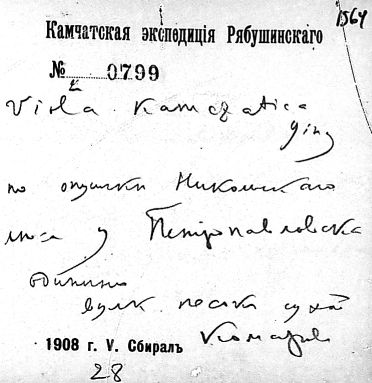 1564
Камчатская экспедиція Рябушинскаго
№ 0799
Viola kamczatica
Ging
по опушки Никольскаго
у Петропавловска
вулк пески сухой
1908 г. V. Сбиралъ Комаров
28